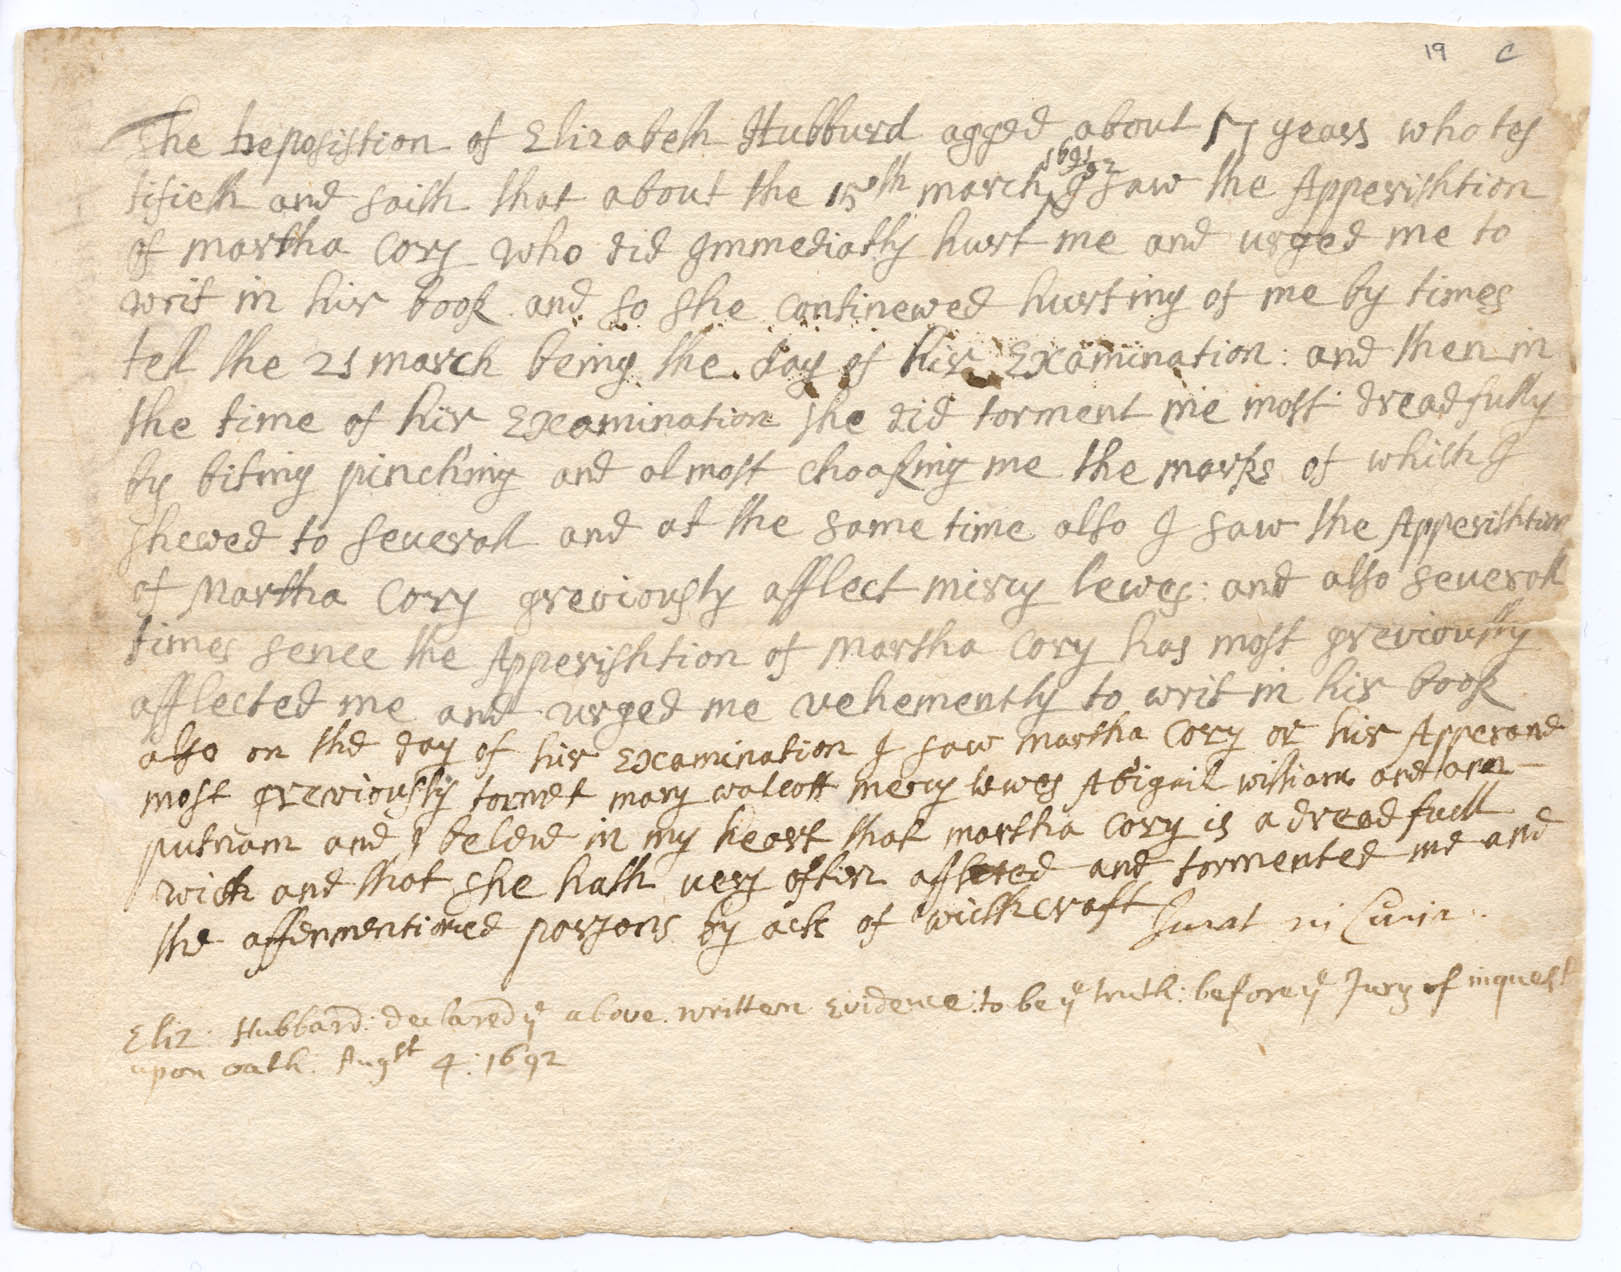 19 C
The Deposistion of Elizabeth Hubburd agged about 17 years who tes
tifieth and saith that about the 15th march 1691/92 I saw the Apperishtion
of martha Cory who did Immediatly hurt me and urged me to
writ in hir book and so she continewed hurting of me by times
tell the 21 march being the day of hir Examination: and then in
the time of hir Examination she did torment me most dreadfully
by biting pinching and almost choaking me the marks of which I
shewed to severall and at the same time also I saw the Apperishtion
of Martha Cory greviously afflect mircy lewes: and also severall
times sence the Apperishtion of Martha Cory has most greviously
afflected me and urged me vehemently to writ in hir book
also on the day of hir Examination I saw martha Cory or hir Apperance
most greviously tormet mary walcott mercy lewes Abigail williams and ann
putnam and I beleve in my heart that martha Cory is a dreadfull
wich and that she hath very often afflected and tormented me and
the affermentioned parsons by acts of wicthcraft Jurat in Curia
Eliz: Hubbard: declared yᵉ above written Evidence: to be yᵉ truth: before yᵉ Jury of inquest
upon oath: Augst 4: 1692